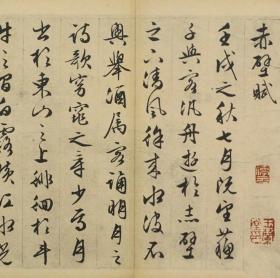 赤壁賦
壬戌之秋七月既望蘇
子與客汎舟遊於赤壁
之下清風徐來水波不
興舉酒属客誦明月之
詩歌窈窕之章少焉月
出於東山之上徘徊於斗
牛之間白露横江水光